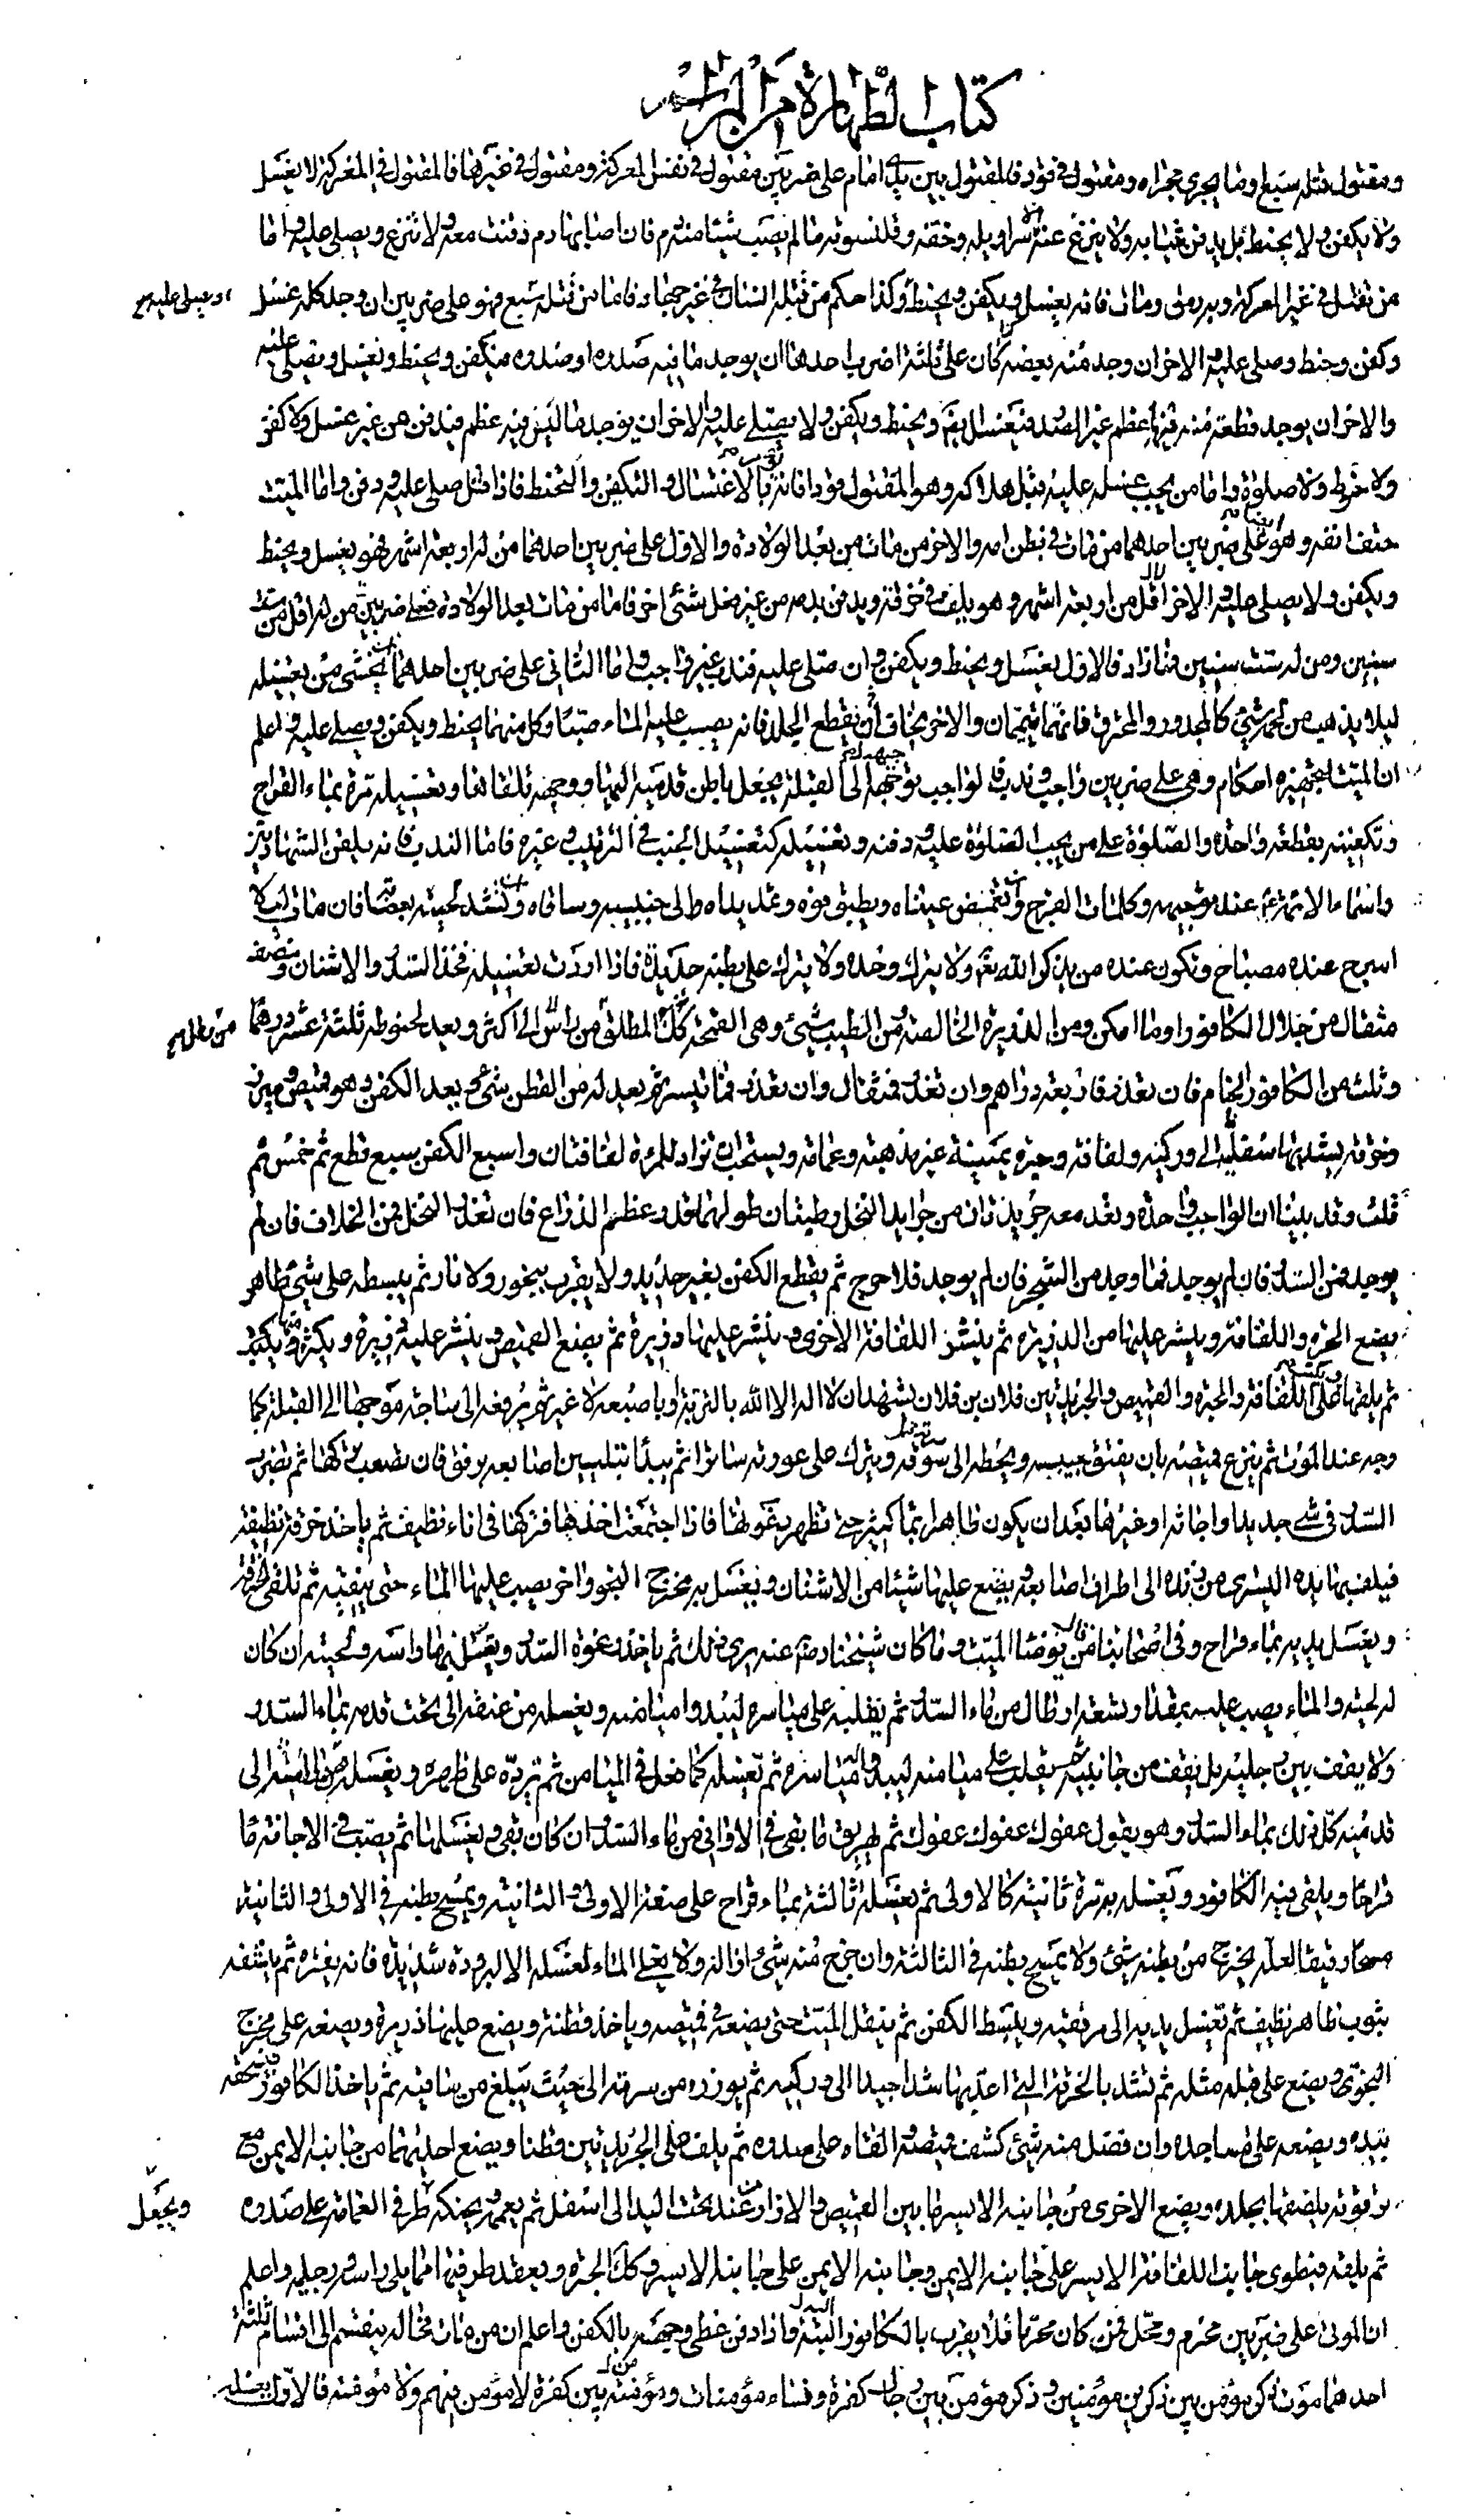 كتاب الطهارة من المراسم
ومقتول قتله سبع وما يجرى مجراه ومقتول فى قود فالمقتول بين يدى امام على ضربين مقتول فى نفس المعركة ومقتول فى غيرها فالمقتول فى المعركة لا يغسل
ولا يكفن ولا يحنط بل يدفن بثيابه ولا ينزع عنه الا سراويله وخفه وقلنسوته ما لم يصب شيئا منها دم فان اصابها دم دفنت معه ولا تنزع ويصلى عليه واما
من قتل فى غير المعركة وبه رمق ومات فانه يغسل ويكفن ويحنط وكذا حكم من قتله انسان فى غير جهاد فاما من قتله سبع فهو على ضربين ان وجد كله غسل
ويصلى عليه
وكفن وحنط وصلى عليه والاخر ان وجد منه بعضه كان على ثلثة اضرب احدها ان يوجد ما فيه صدره او صدره فيكفن ويحنط ويغسل ويصلى عليه
والاخر ان يوجد قطعة منه فيها عظم غير الصدر فيغسل ايضا ويحنط ويكفن ولا يصلى عليه والاخر ان يوجد ما ليس فيه عظم فيدفن من غير غسل ولا كفن
ولا حنوط ولا صلوة واما من يجب غسله عليه قبل هلاكه وهو المقتول قودا فانه يؤمر بالاغتسال والتكفين والتحنط فاذا قتل صلى عليه ودفن واما الميت
حتف انفه وهو ايضا على ضربين احدهما من مات فى بطن امه والاخر من مات من بعد الولادة والاول على ضربين احدهما من له اربعة اشهر فهو يغسل ويحنط
ويكفن ولا يصلى عليه والاخر لاقل من اربعة اشهر وهو يلف فى خرقة ويدفن بدمه من غير فعل شئ اخر فاما من مات بعد الولادة فعلى ضربين من له اقل من ست
سنين ومن له ست سنين فما زاد فالاول يغسل ويحنط ويكفن وان صلى عليه فندب غير واجب واما الثانى على ضربين احدهما يخشى من تغسيله
ليلا يذهب من لحمه شئ كالمجدور والمحترق فانهما ييممان والاخر يخاف ان يقطع الجلد فانه يصب عليه الماء صبا وكل منهما يحنط ويكفن ويصلى عليه واعلم
ان الميت لتجهيزه احكام وهى على ضربين واجب وندب فالواجب توجيهه الى القبلة يجعل باطن قدميه اليها ووجهه تلقائها وتغسيله مرة بماء القراح
وتكفينه بقطعة واحدة والصلوة على من يجب الصلوة عليه ودفنه وتغسيله كتغسيل الجنب فى الترتيب وغيره فاما الندب فانه يلقن الشهادتين
واسماء الائمة ع عند توجيهه وكلمات الفرج وان تغمض عيناه ويطبق فوه وتمد يداه الى جنبيه وساقاه وان تشد لحيته بعصابة فان مات ليلا
اسرج عنده مصباح وتكون عنده من يذكر الله تعالى ولا يترك وحده ولا يترك على بطنه حديدة فاذا اردت تغسيله فخذ السدر والاشنان ونصف
مثقال من جلال الكافور او ما امكن ومن الذريرة الخالصة من الطيب شئ وهى القمحة كك المطلق من راس الى اكثر ويعد لحنوطه ثلثة عشر درهما
وثلث من الكافور الخام فان تعذر فاربعة دراهم وان تعذر فمثقال وان تعذر فما تيسر ثم يعد له من القطن شئ ويعد الكفن وهو قميص وميزر
وخرقة يشد بها سفليه الى وركيه ولفافة وحبرة يمنية غير مذهبة وعمامة ويستحب ان تزاد للمرءة لفافتان واسبغ الكفن سبع قطع ثم خمس ثم
ثلث وقد بينا ان الواجب واحدة وتعد معه جريدتان من جرايد النخل رطبتان طولهما قدر عظم الذراع فان تعذر النخل فمن الخلاف فان لم
يوجد فمن السدر فان لم يوجد فما وجد من الشجر فان لم يوجد فلا حرج ثم يقطع الكفن بغير حديد ولا يقرب ببخور ولا نار ثم يبسطه على شئ طاهر
يضع الحبرة واللفافة وينثر عليها من الذريرة ثم ينشر اللفافة الاخرى وينثر عليها ذريرة ثم يضع القميص وينثر عليه ذريرة ويكثر منها ويكتب
ثم يلفها على اللفافة والحبرة والقميص والجريدتين فلان بن فلان يشهد ان لا اله الا الله بالتربة او باصبعه لا غير ثم يرفعه الى ساجة موجها الى القبلة كما
وجه عند الموت ثم ينزع قميصه بان يفتق جيبه ويحطه الى سرته ويترك على عورته ساترا ثم يبدا بتليين اصابعه برفق فان تصعبت تركها ثم تضرب
السدر فى شئ جديد او اجانة او غيرها بعد ان يكون طاهرا بماء كثير حتى تظهر رغوتها فاذا اجتمعت اخذها فتركها فى اناء نظيف ثم ياخذ خرقة نظيفة
فيلف بها يده اليسرى من زنده الى اطراف اصابعه ويضع عليها شيئا من الاشنان ويغسل به مخرج النجو واخر يصب عليها الماء حتى ينقيه ثم تلقى الخرقة
ويغسل يديه بماء قراح وفى اصحابنا من قال يوضا الميت وما كان شيخنا رضى الله عنه يرى ذلك ثم ياخذ رغوة السدر ويغسل بها راسه ولحيته ان كان
له لحية والماء يصب عليه بمقدار تسعة ارطال من ماء السدر ثم يقلبه على مياسره ليبدوا ميامنه ويغسله من عنقه الى تحت قدمه بماء السدر
ولا يقف بين رجليه بل يقف من جانبيه ثم يقلب على ميامنه ليبدو له مياسره ثم تغسيله كما فعل فى الميامن ثم ترده على ظهره ويغسله من راسه الى
قدميه كل ذلك بماء السدر وهو يقول عفوك عفوك عفوك ثم يهريق ما بقى فى الاوانى من ماء السدر ان كان بقى ويغسلها ثم يصب فى الاجانة ماء
قراحا ويلقى فيه الكافور ويغسله به مرة ثانية كالاولى ثم يغسله ثالثة بماء قراح على صفة الاولى والثانية ويمسح بطنه فى الاولى والثانية
مسحا رقيقا لعله يخرج من بطنه شئ ولا يمسح بطنه فى الثالثة وان خرج منه شئ ازاله ولا يغلى الماء لغسله الا لبرودة شديدة فانه يفتره ثم ينشفه
بثوب طاهر نظيف ثم تغسل يديه الى مرفقيه ويبسط الكفن ثم ينقل الميت حتى يضعه فى قميصه وياخذ قطنة ويضع عليها ذريرة ويضعه على مخرج
النجو ويضع على قبله مثله ثم تشد بالخرقة التى اعدها شدا جيدا الى وركيه ثم يوزره من سرته الى حيث يبلغ من ساقيه ثم ياخذ الكافور فيسحقه
بيده ويضعه على مساجده وان فضل منه شئ كشف قميصه القاه على صدره ثم يلف على الجريدتين قطنا ويضع احديهما من جانبه الايمن مع
ترقوته يلصقها بجلده ويضع الاخرى من جانبه الايسر ما بين القميص والازار من عند تحت اليد الى اسفل ثم يعممه يحنكه طرفى العمامة على صدره
ويجعل
ثم يلفه فيطوى جانب اللفافة الايسر على جانبه الايمن وجانبه الايمن على جانبه الايسر وكك الحبرة ويعقد طرفيها مما يلى راسه ورجليه واعلم
ان الموتى على ضربين محرم ومحل فمن كان محرما فلا يقرب بالكافور البتة واذا دفن غطى وجهه بالكفن واعلم ان من مات فحاله ينقسم الى اقسام ثلثة
احدها موت ذكر مؤمن بين ذكرين مؤمنين وذكر مؤمن بين رجال كفرة ونساء مؤمنات ومؤمنة بين كفرة لا مؤمن منهم ولا مؤمنة فالاول يغسله